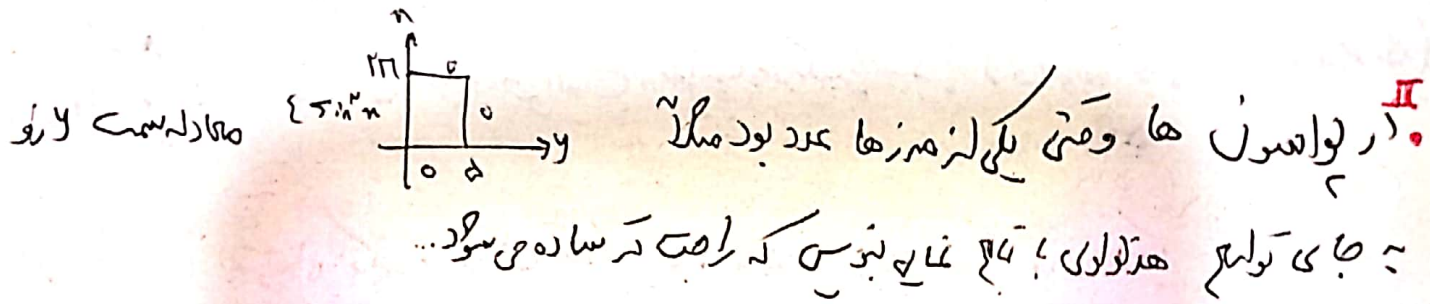 II. در پواسون ها وقتی یکی از مرزها عدد بود مثلاً
x
۲π
۰
۴ sin³x
۰
y
۰ ۵
معادله سمت y رو
به جای توابع هذلولوی با تابع نمایی بنویس که راحت تر ساده می شود...